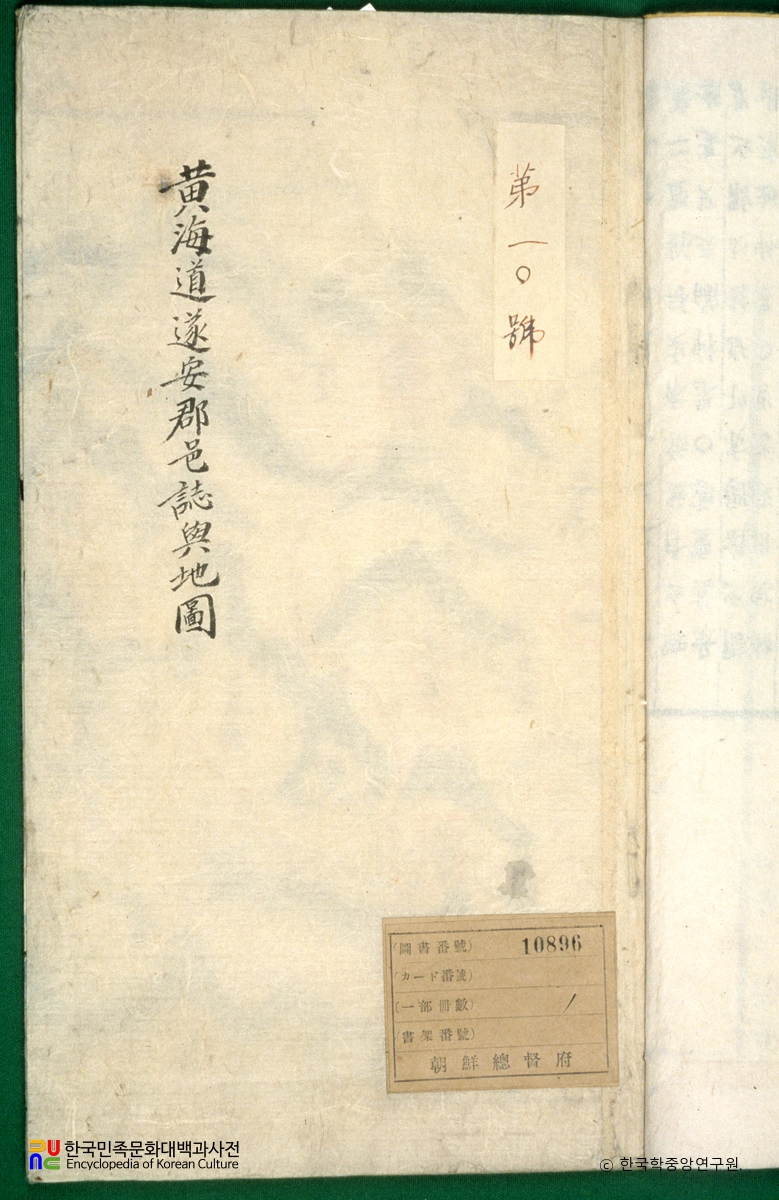 第一〇號
黃海道遂安郡邑誌與地圖
(圖書番號) 10896
(カード番號)
(一部冊數) 1
(書架番號)
朝鮮總督府
한국민족문화대백과사전
Encyclopedia of Korean Culture
© 한국학중앙연구원